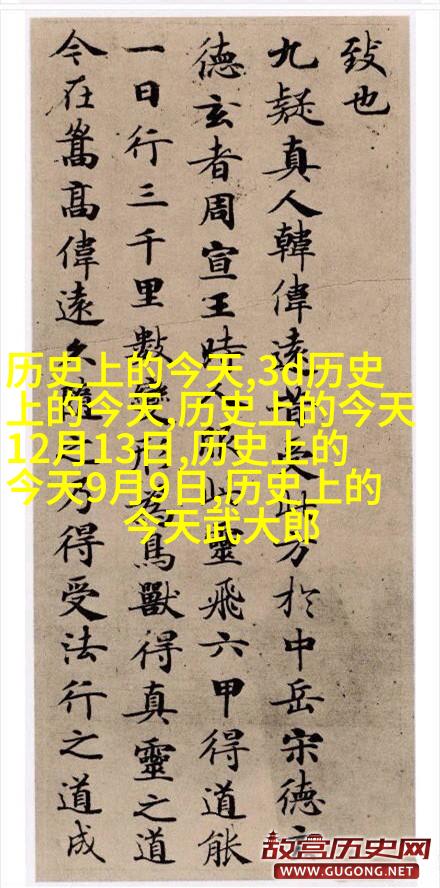 致也
九疑真人韓偉遠昔受此方於中岳宋德
德玄者周宣王時人服此靈飛六甲得道能
一日行三千里數變形為鳥獸得真靈之道
今在嵩高偉遠久隨之乃得受法行之道成
历史上的今天,3d历史
上的今天,历史上的今天
12月13日,历史上的
今天9月9日,历史上的
今天武大郎
故宫历史网
WWW.GUGONG.NET